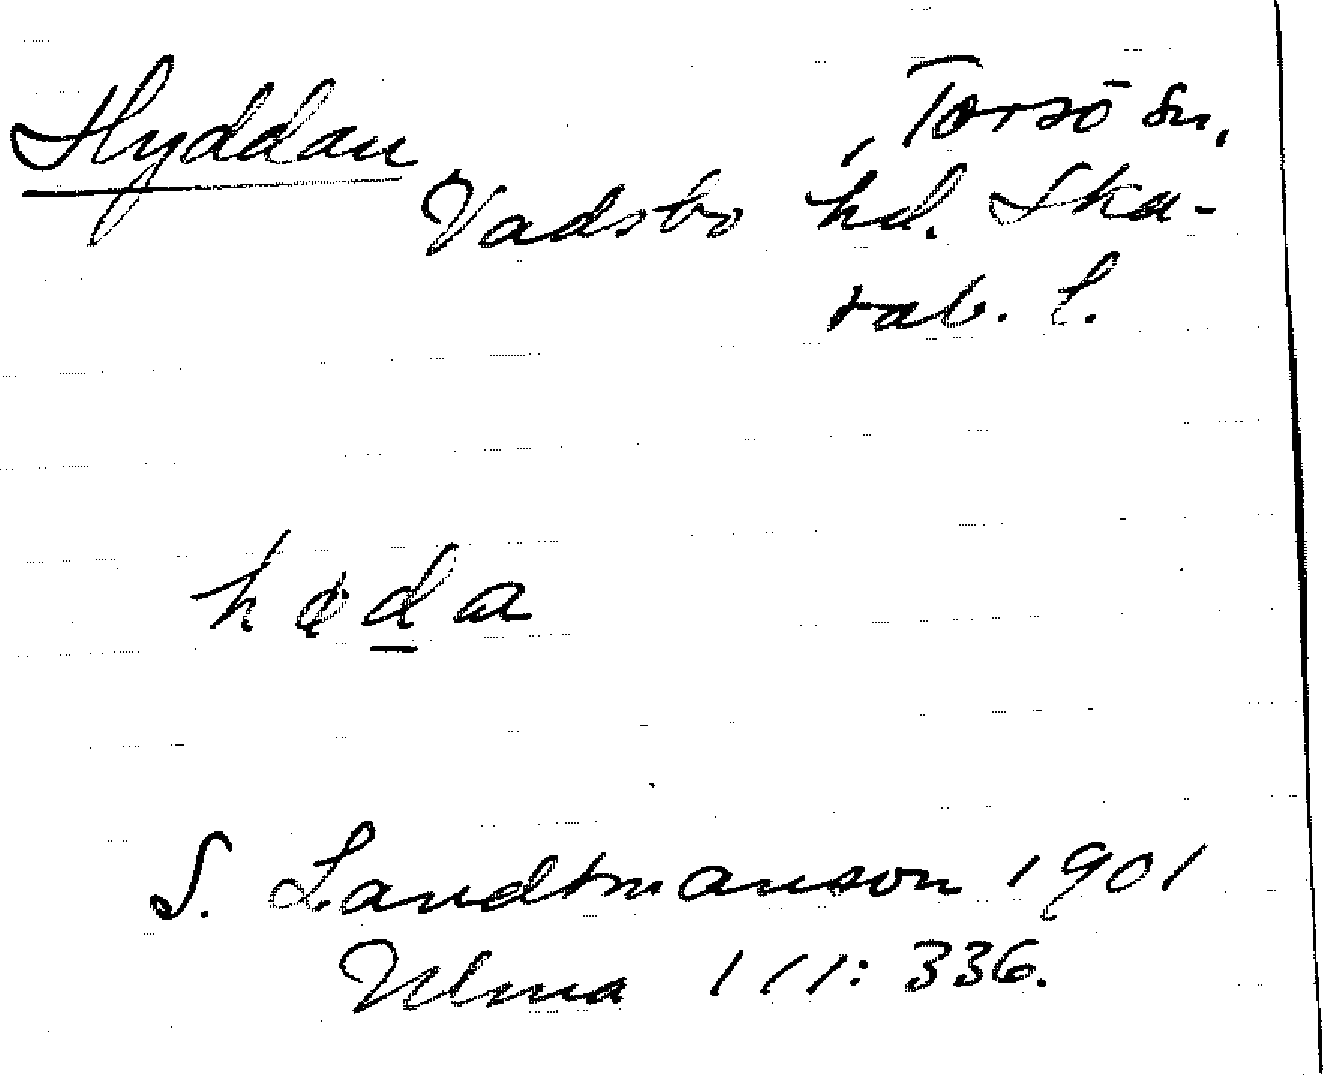 Hyddan
, Torsö sn,
Vadsbo hd. Ska-
rab. l.
hød̲a
S. Landtmanson 1901
Ulma 111: 336.